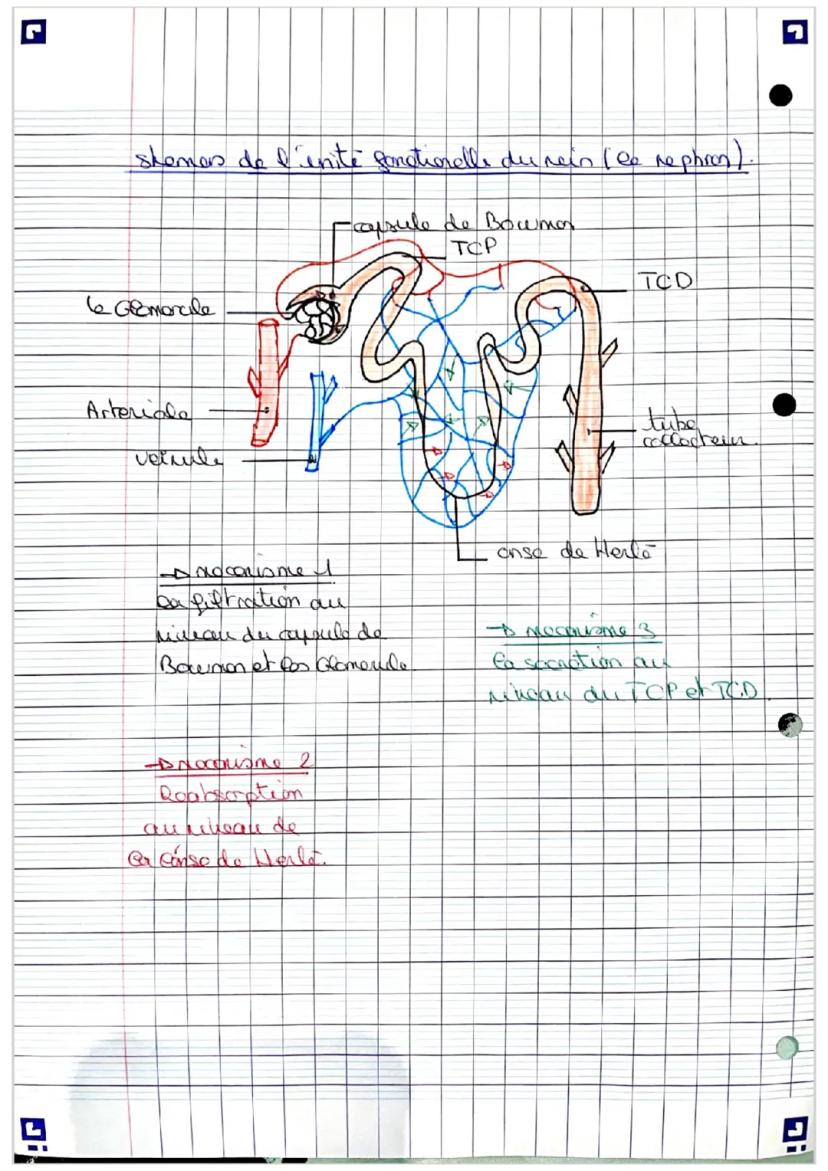 shemas de l'unité fonctionelle du rein (le nephron).
capsule de Bowman
TCP
TCD
le Glomerule
Arteriole
veinule
tube
collecteur.
anse de Henlé
→ mecanisme 1
la filtration au
niveau du capsule de
Bowman et les Glomerule
→ mecanisme 3
la secretion au
niveau du TCP et TCD.
→ mecanisme 2
Reabsorption
au niveau de
la l'anse de Henlé.